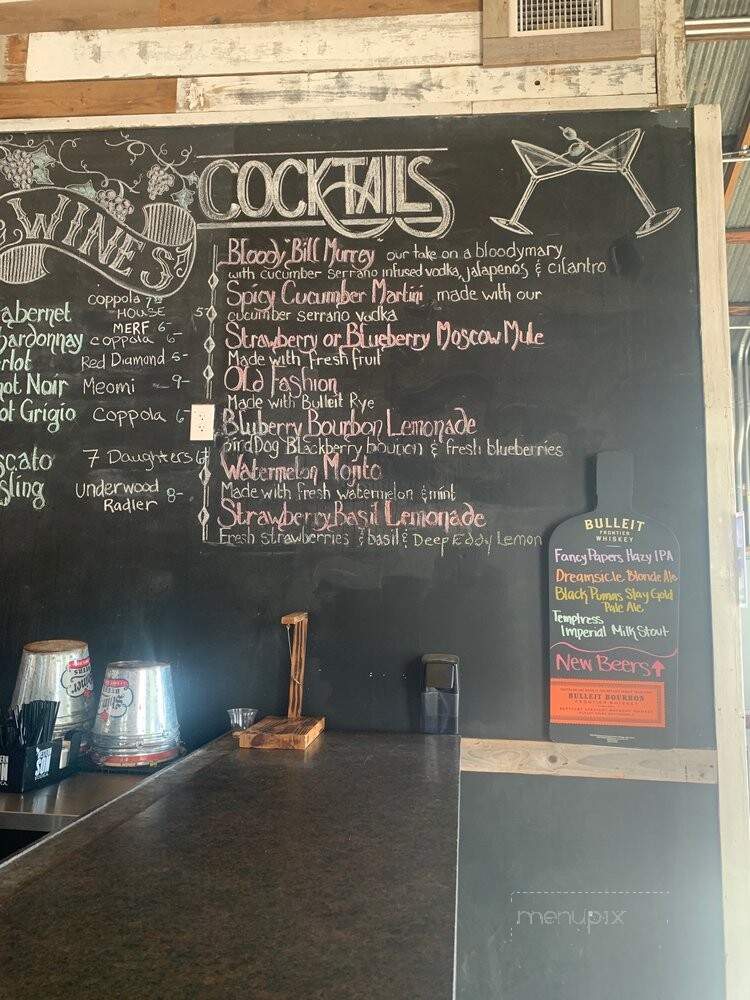 WINES
abernet coppola 7⁵⁰
HOUSE 5⁰
MERF 6-
hardonnay coppola 6-
rlot Red Diamond 5-
ot Noir Meomi 9-
ot Grigio Coppola 6
scato 7 Daughters
sling Underwood 8-
Radler
COCKTAILS
Bloody "Bill Murrey our take on a bloodymary
with cucumber serrano infused vodka, jalapenos & cilantro
Spicy Cucumber Martini made with our
cucumber serrano vodka
Strawberry or Blueberry Moscow Mule
Made with fresh fruit
Old Fashion
Made with Bulleit Rye
Bluberry Bourbon Lemonade
BirdDog Blackberry & fresh blueberries
Watermelon Mojito
Made with fresh watermelon & mint
Strawberry Basil Lemonade
Fresh strawberries & basil & Deep Eddy Lemon
BULLEIT
FRONTIER
WHISKEY
Fancy Papers Hazy IPA
Dreamsicle Blonde Ale
Black Pumas Stay Gold
Pale Ale
Temptress
Imperial Milk Stout
New Beers
BULLEIT BOURBON
FRONTIER WHISKEY
menupix